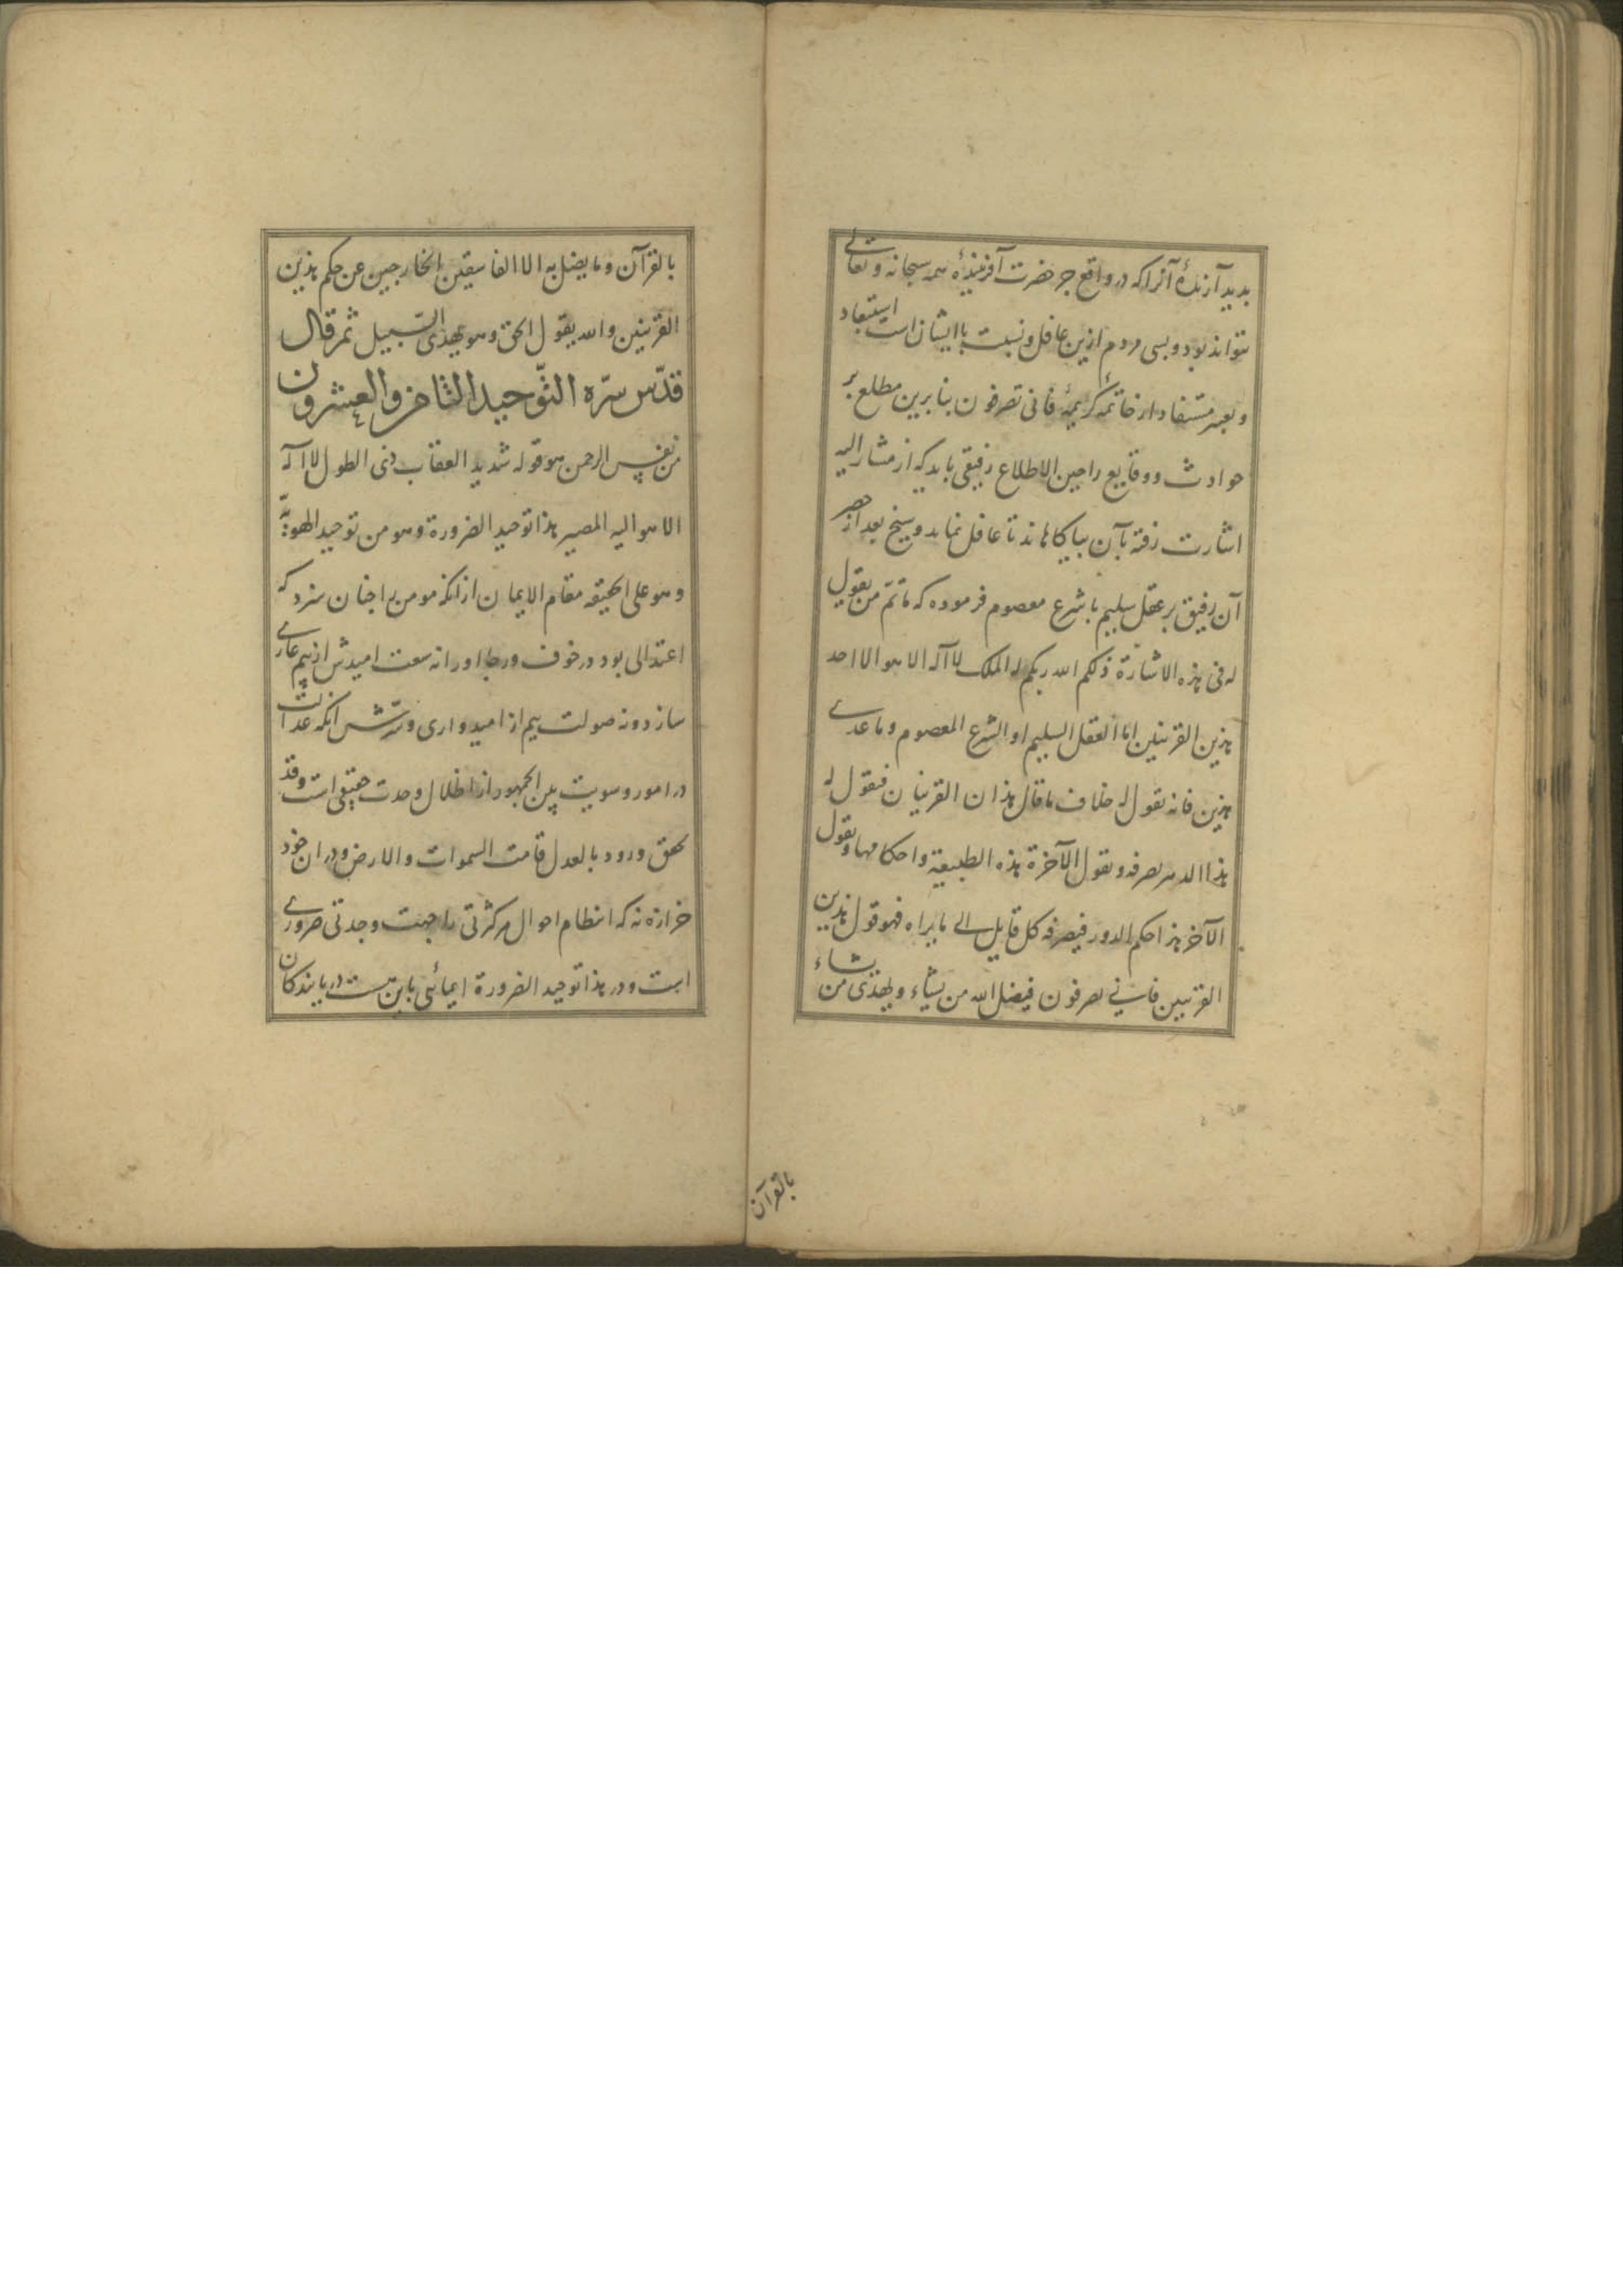 بدید آرندۀ آنرا که در واقع جز حضرت آفرینندۀ همه سبحانه و تعالی
نتواند بود و بسی مردم ازین غافل و نسبت با ایشان است استبعاد
و تعبیر مستفاد از خاتمۀ کریمۀ فانی تصرفون بنا برین مطلع بر
حوادث و وقایع را حین الاطلاع رفیقی باید که از مشار الیه
اشارت رفته بآن بیاکاهاند تا غافل نماید و شیخ بعد از حصر
آن رفیق بر عقل سلیم یا شرع معصوم فرموده که ما ثم من یقول
له فی هذه الاشارة ذلکم الله ربکم له الملک لا اله الا هو الا احد
هذین القرینین اما العقل السلیم او الشرع المعصوم و ما عدی
هذین فانه یقول له خلاف ما قال هذان القرینان فیقول له
هذا الدهر تصرفه و یقول الآخر هذه الطبیعة و احکامها و یقول
الآخر هذا حکم الدور فیصرفه کل قایل الی ما یراه فهو قول هذین
القرینین فانی تصرفون فیضل الله من یشاء و یهدی من یشاء
بالقرآن
بالقرآن و ما یضل به الا الفاسقین الخارجین عن حکم هذین
القرینین و الله یقول الحق و هو یهدی السبیل ثم قال
قدّس سرّه التّوحید الثامن و العشرون
من نفس الرحمن هو قوله شدید العقاب ذی الطول لا اله
الا هو الیه المصیر هذا توحید الصیرورة و هو من توحید الهویّة
و هو علی الحقیقه مقام الایمان از انکه مومن را چنان سزد که
اعتدالی بود در خوف و رجا او را نه سعت امیدش از بیم عاری
سازد و نه صولت بیم از امیدواری و سرّش انکه عدالت
در امور و سویت بین الجمهور از اظلال وحدت حقیقی است و قد
تحقق ورود بالعدل قامت السموات و الارض و در ان خود
خرازه نه که انتظام احوال هر کثرتی را جهت وحدتی ضروری
است و در هذا توحید الصیرورة ایمائی باین هست دریابندکان